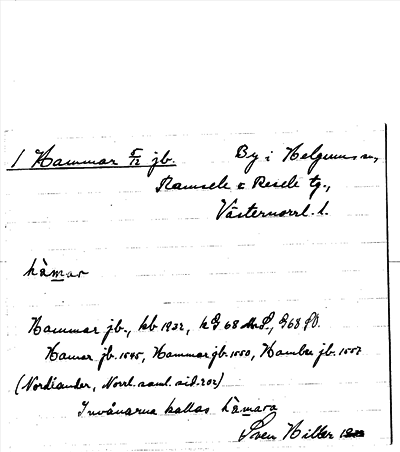 1 Hammar 5/12 jb. By i Helgums sn,
Ramsele & Resele tg.,
Västernorrl. l.
hàmar
Hammar jb., kb 1932, k G 68
Hamar jb. 1545, Hammar jb. 1550, Hambar jb. 1557
(Nordlander, Norrl. saml. sid. 202)
Invånarna kallas hàmara
Sven Hiller